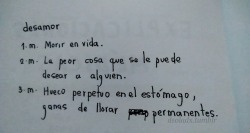 desamor
1. m. Morir en vida.
2. m. La peor cosa que se le puede
desear a alguien.
3. m. Hueco perpetuo en el estómago,
ganas de llorar permanentes.